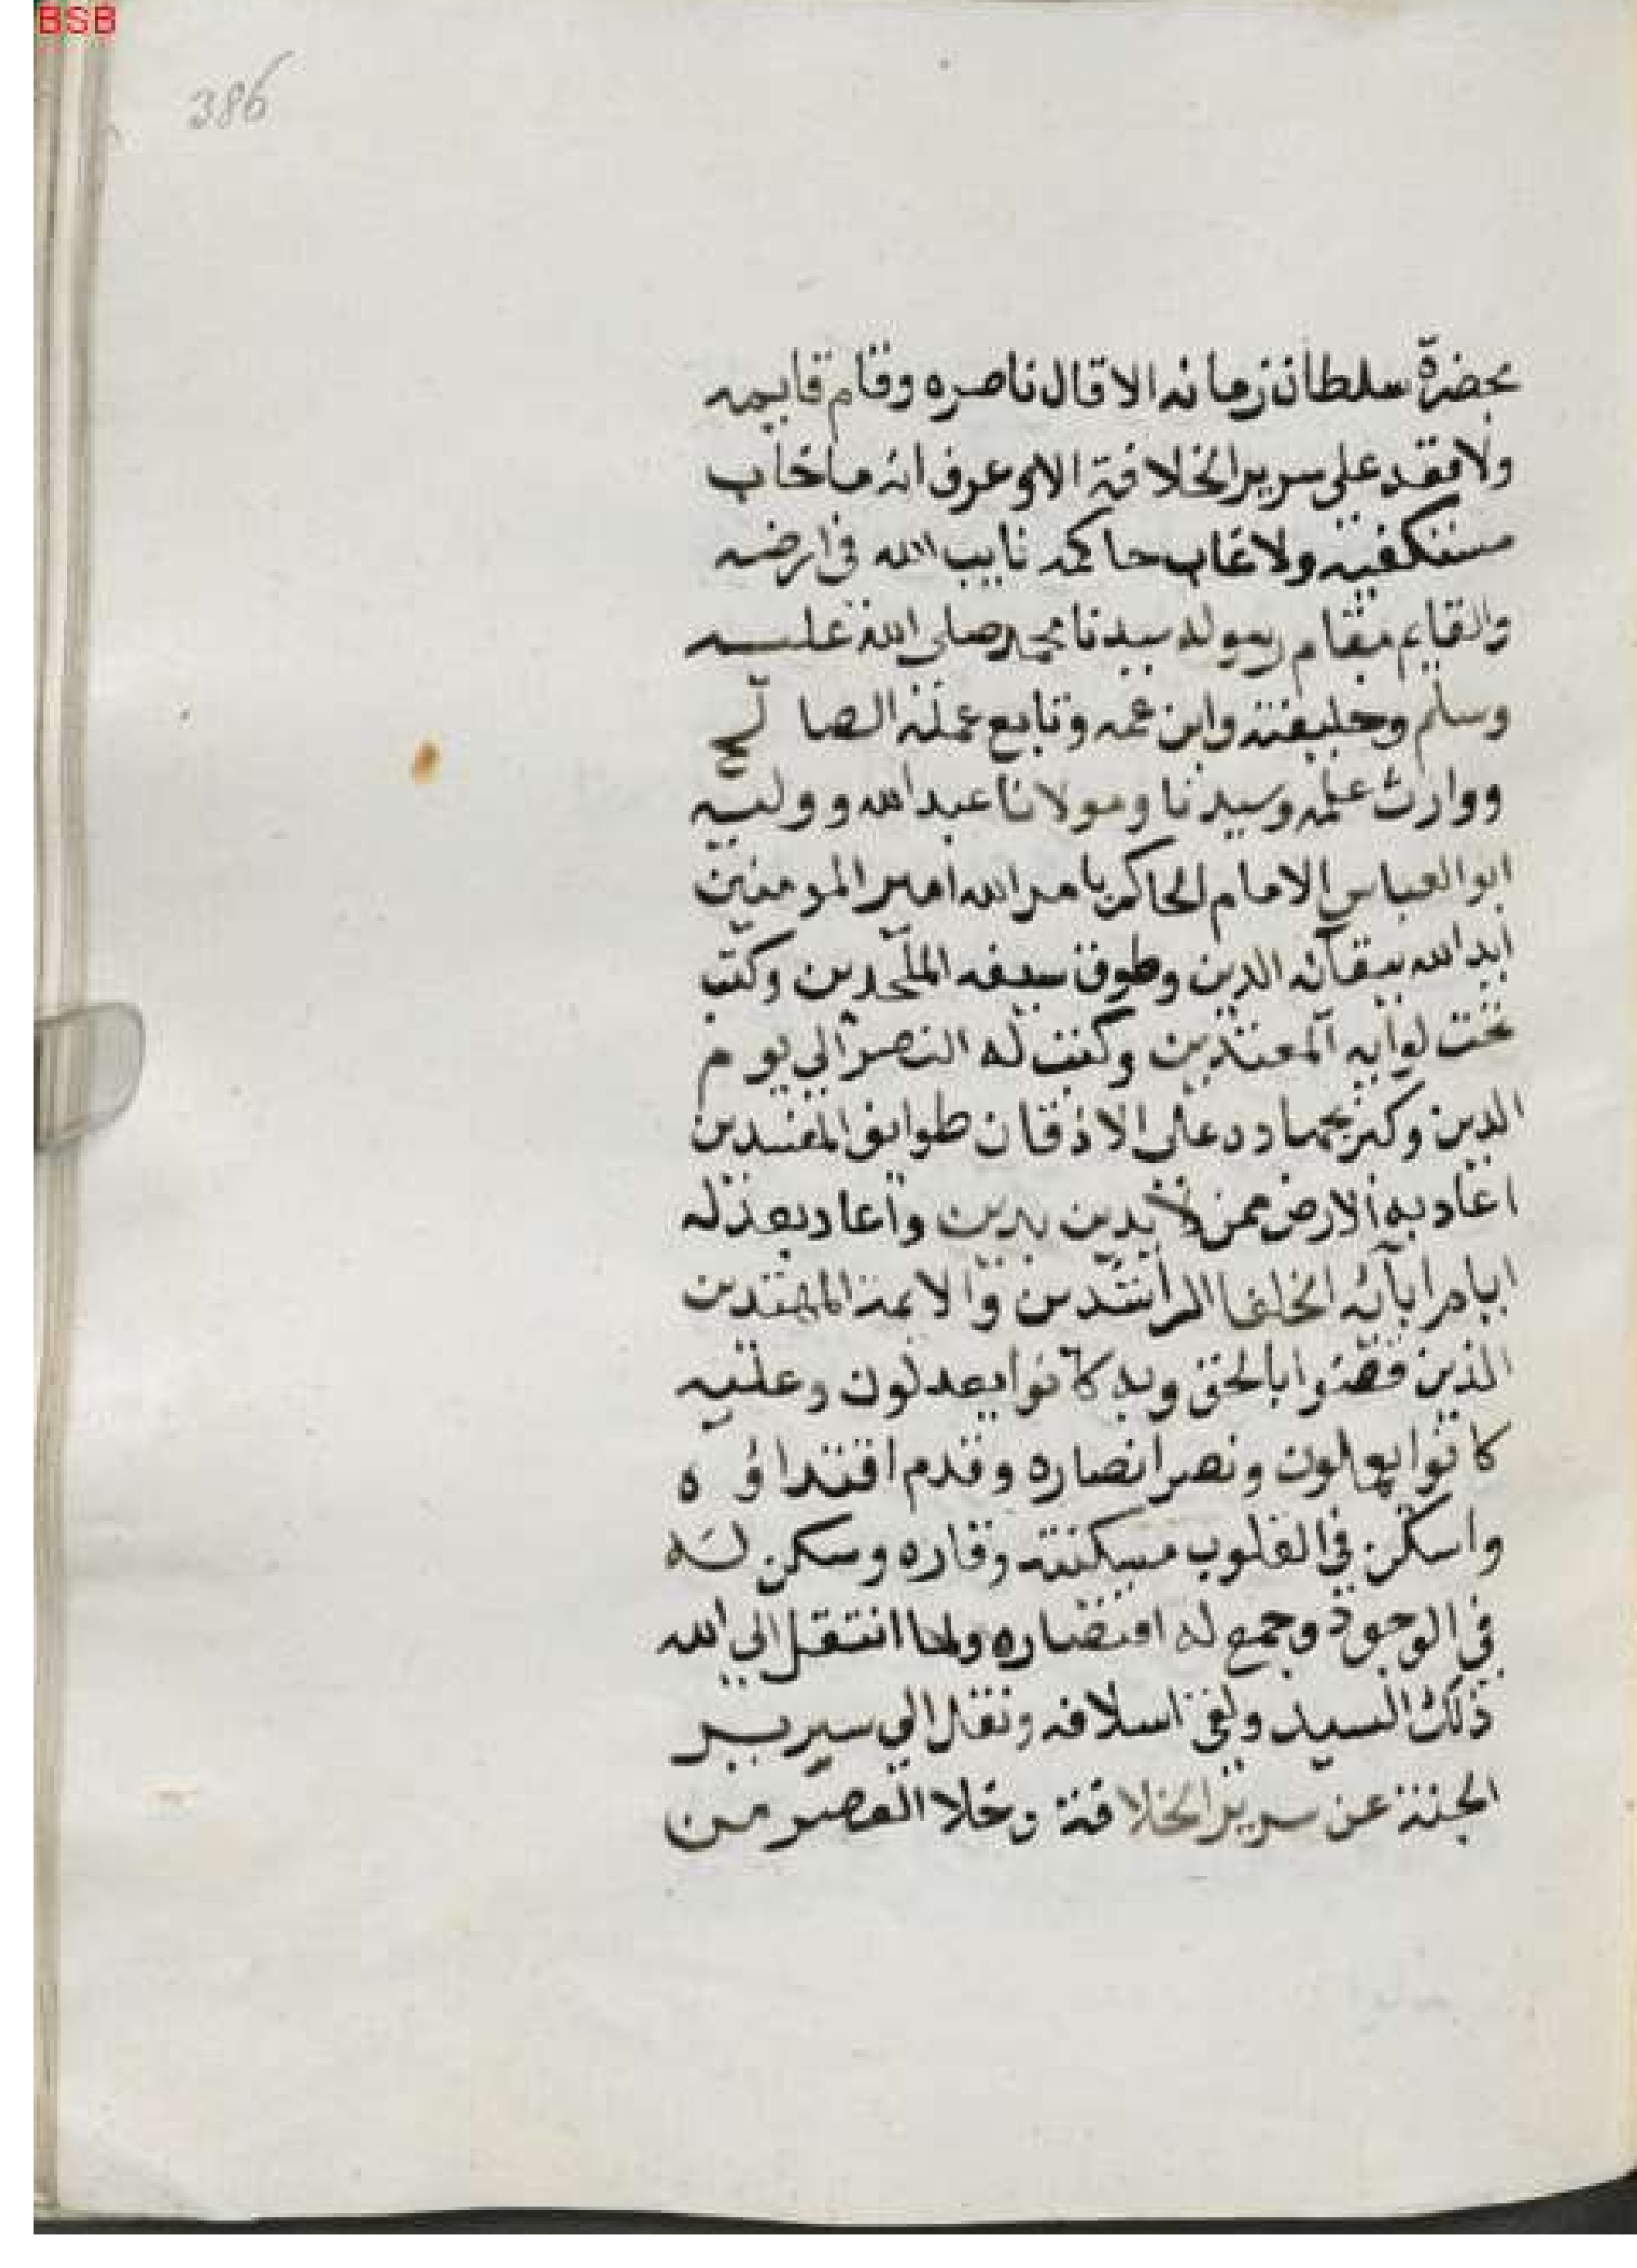 BSB
386
بحضرة سلطان زمانه الا قال ناصره وقام قايمه
ولا مقعد على سرير الخلافة الا وعرف انه ما خاب
مستكفيه ولا غاب حاكمه نايب الله في ارضه
والقايم مقام رسوله سيدنا محمد صلى الله عليه
وسلم وخليفته وابن عمه وتابع عمله الصالح
ووارث علمه وسيدنا ومولانا عبد الله ووليه
ابو العباس الامام الحاكم بامر الله امير المومنين
ايد الله ببقائه الدين وطوق سيفه الملحدين وكبت
تحت لوايه المعتدين وكتب له النصر الي يوم
الدين وكبر بجهاده على الاذقان طوايف المفسدين
اعاد به الارض ممن لا يدين بدين واعاد بعدله
ايام ابآئه الخلفا الراشدين والايمة المهتدين
الذين قضوا بالحق وبه كانوا يعدلون وعليه
كانوا يعملون ونصر انصاره وقدم اقتداؤه
واسكن في القلوب سكينته وقاره وسكن له
في الوجود وجمع له اقتضاره ولما انتقل الي الله
ذلك السيد ولقي اسلافه ونقل الي سرير
الجنة عن سرير الخلافة وخلا العصر من